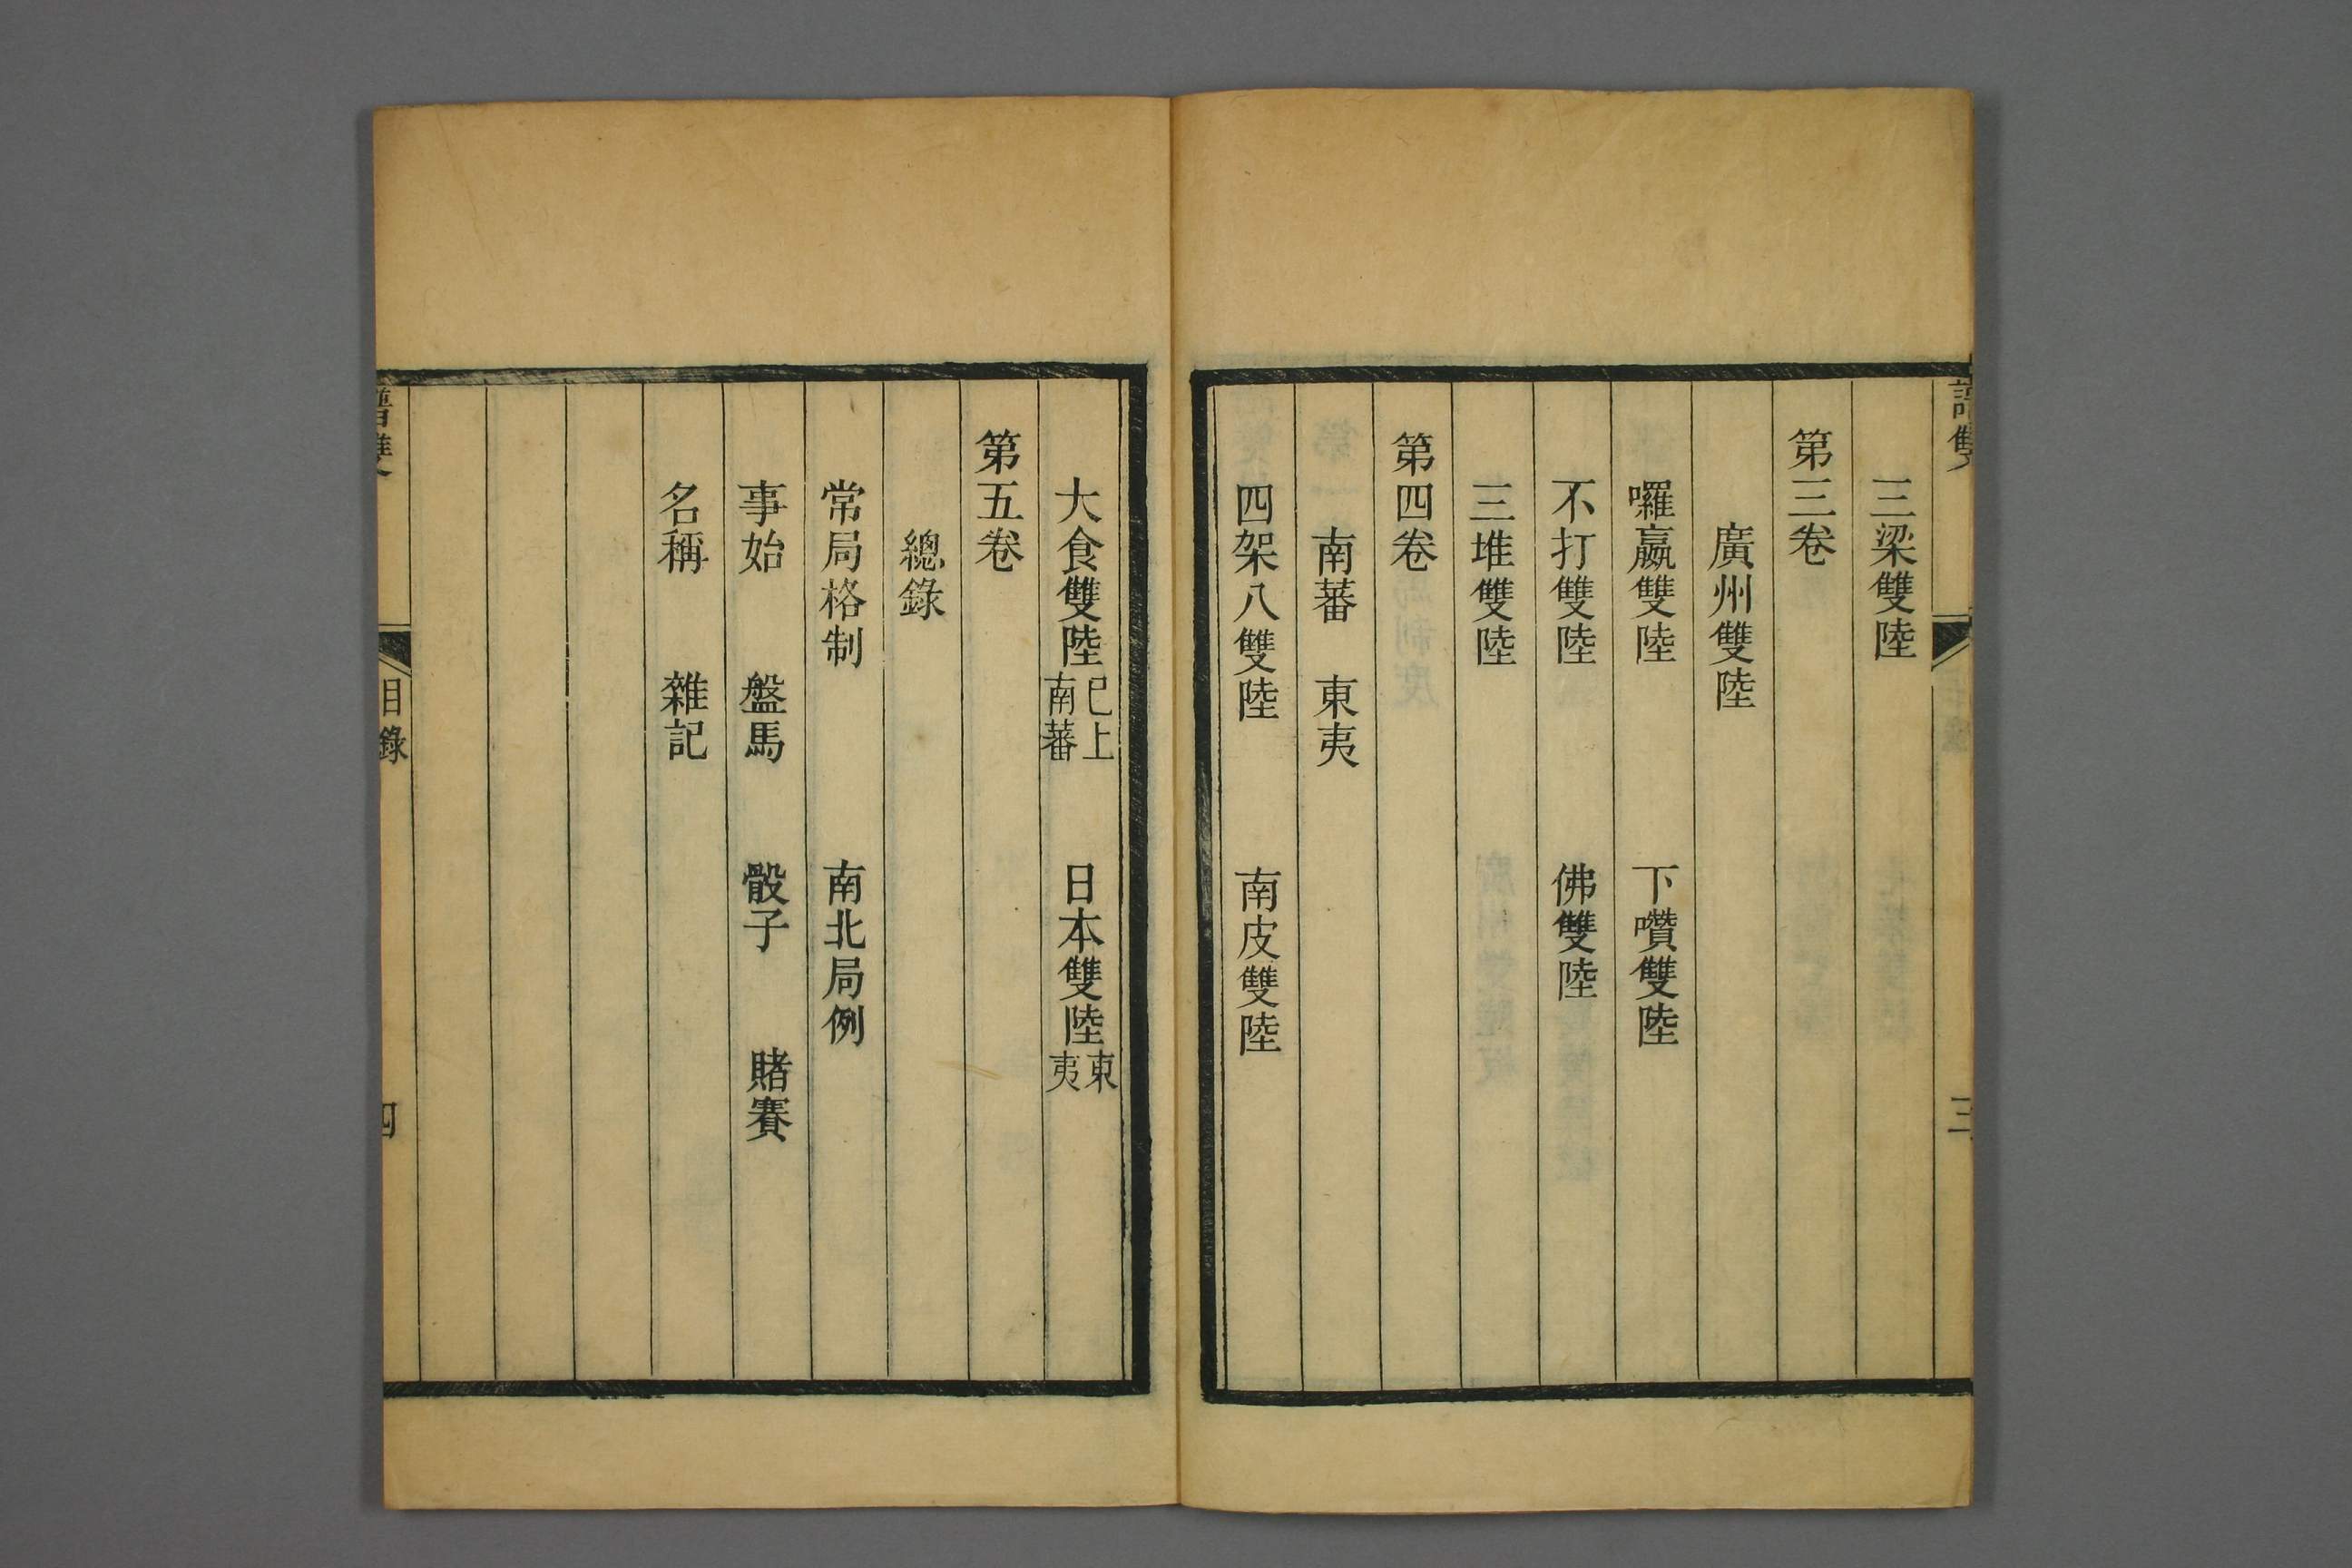 譜雙
三
三梁雙陸
第三卷
廣州雙陸
囉嬴雙陸　下囋雙陸
不打雙陸　佛雙陸
三堆雙陸
第四卷
南蕃　東夷
四架八雙陸　南皮雙陸
大食雙陸已上南蕃　日本雙陸東夷
第五卷
總錄
常局格制　南北局例
事始　盤馬　骰子　賭賽
名稱　雜記
譜雙
目錄
四